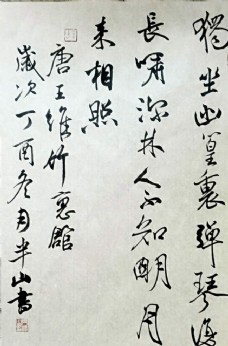 獨坐幽篁裏彈琴復
長嘯深林人不知明月
來相照
唐王維竹裏館
歲次丁酉冬月半山書